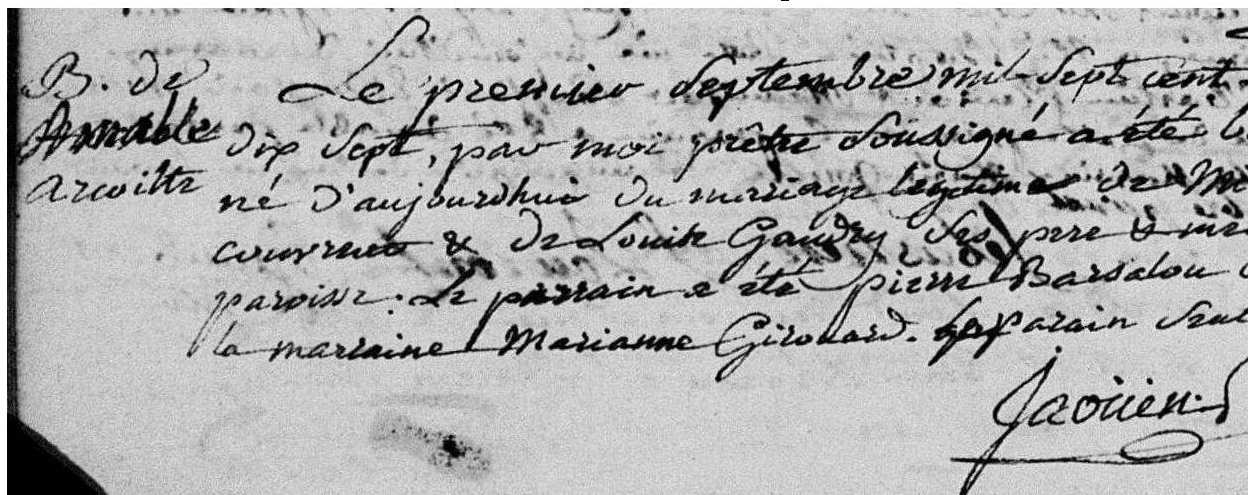 B. de
Amable
arcoitte
Le premier Septembre mil Sept cent
dix Sept, par moi prêtre Soussigné a été
né d'aujourdhui du mariage legitime de
couvreur & de Louise Gaudry Ses pere &
paroisse. Le parrain a été pierre Barsalou
la marraine Marianne Girouard. Le parain
Jaoüen